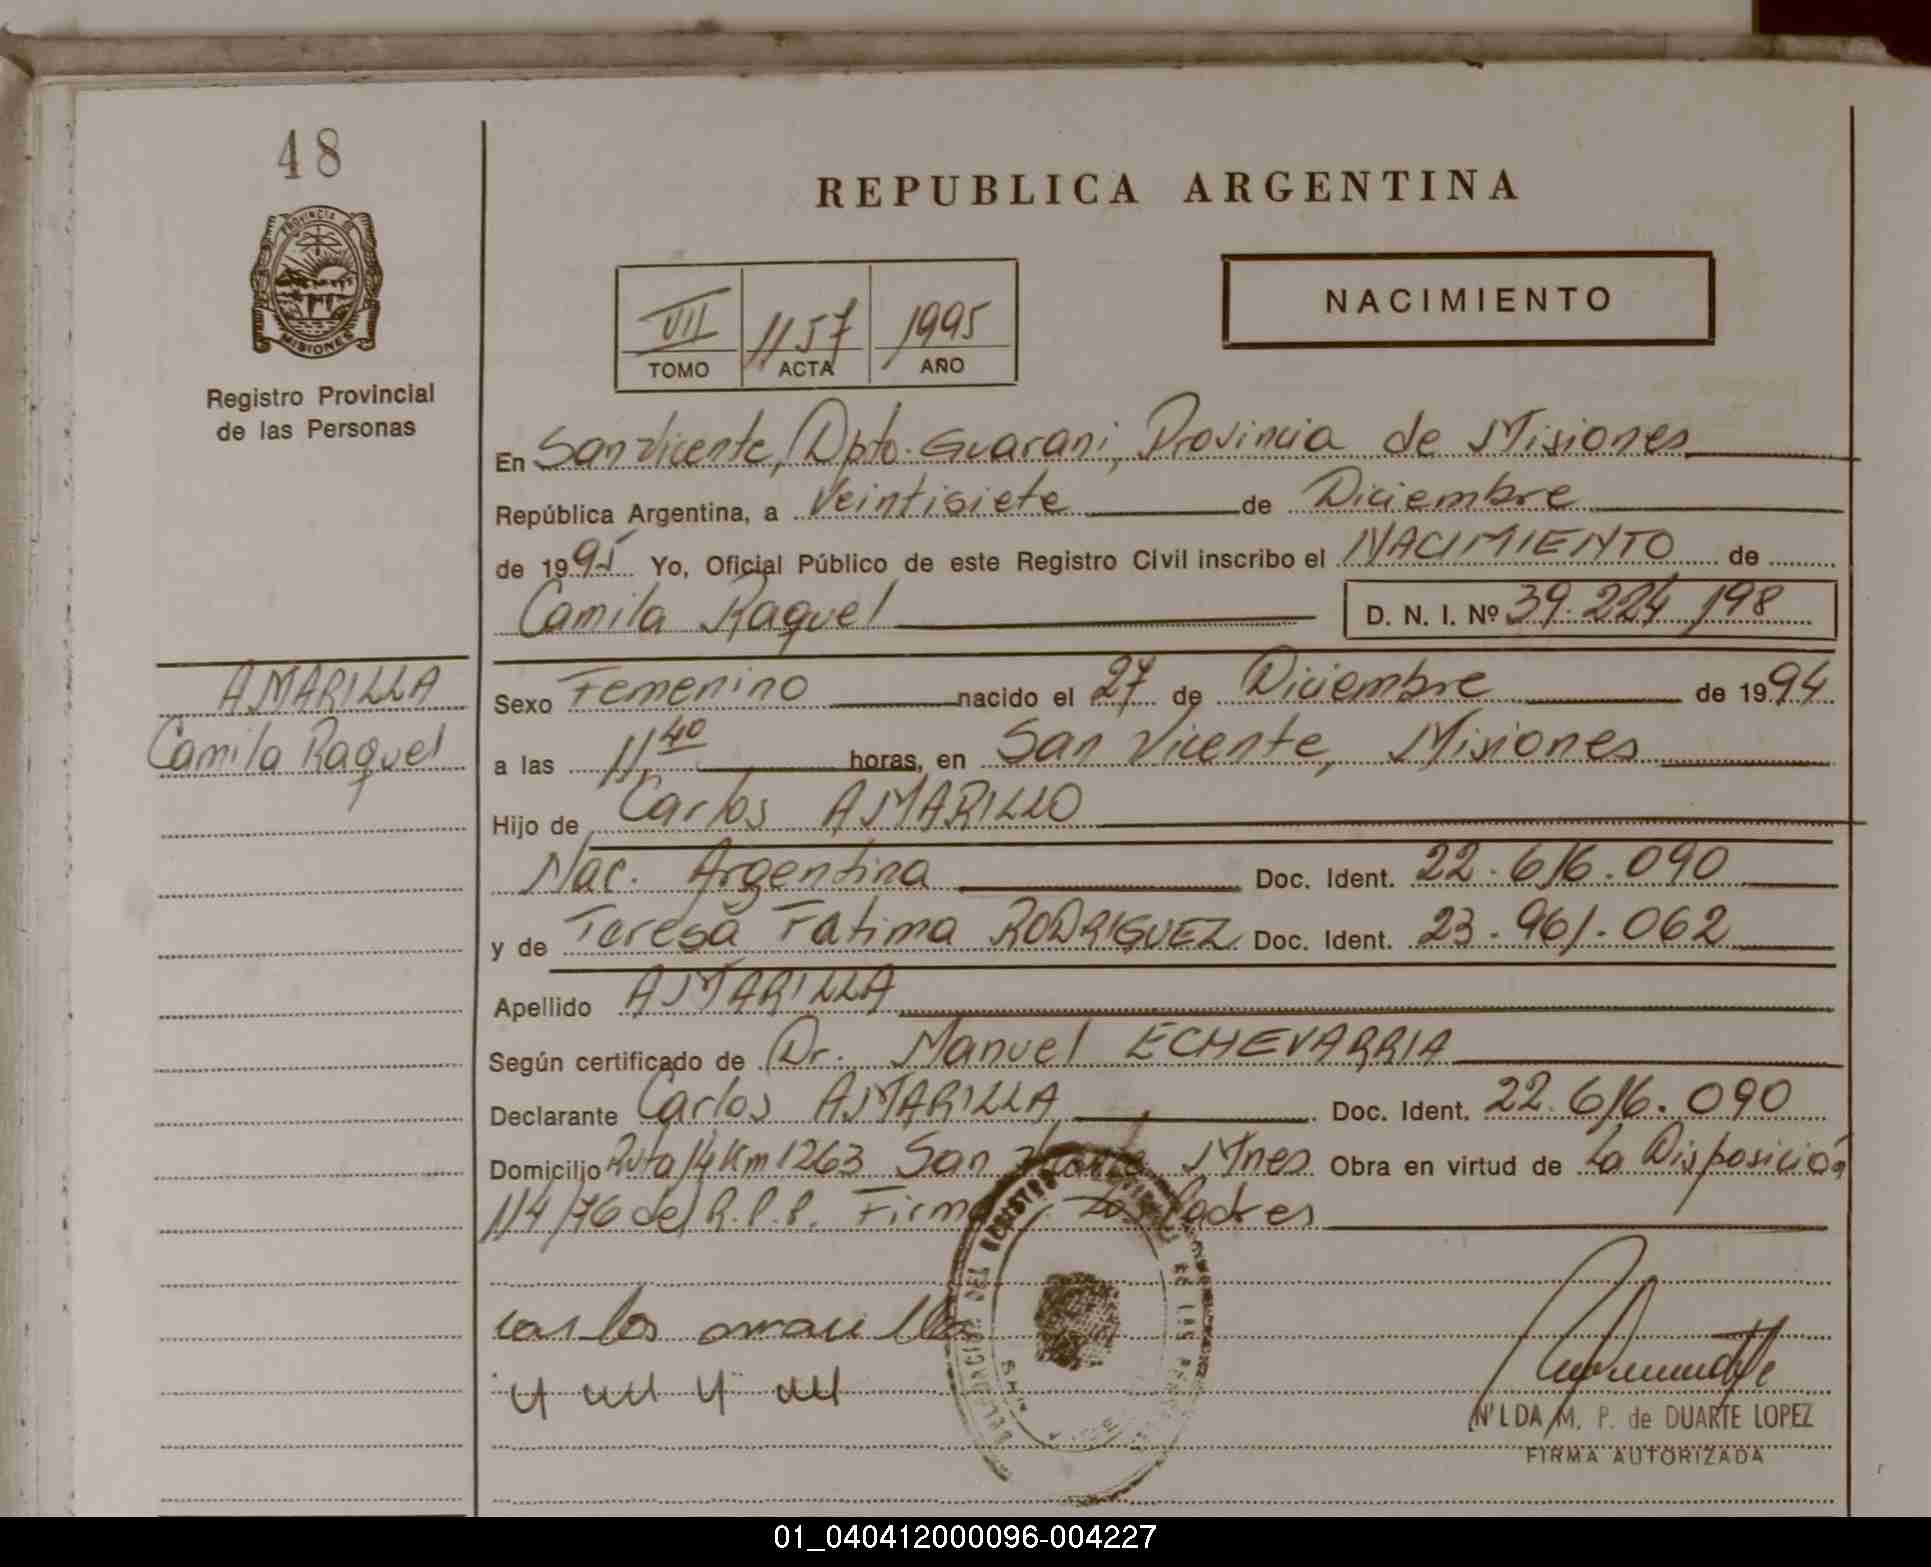 48
REPUBLICA ARGENTINA
PROVINCIA DE
MISIONES
Registro Provincial
de las Personas
VII 1157 1995
TOMO ACTA AÑO
NACIMIENTO
En San Vicente, Dpto. Guarani, Provincia de Misiones
República Argentina, a Veintisiete de Diciembre
de 1995 Yo, Oficial Público de este Registro Civil inscribo el NACIMIENTO de
Camila Raquel D. N. I. Nº 39.224.198
AMARILLA
Camila Raquel
Sexo Femenino nacido el 27 de Diciembre de 1994
a las 11,40 horas, en San Vicente, Misiones
Hijo de Carlos AMARILLO
Nac. Argentina Doc. Ident. 22.616.090
y de Teresa Fatima RODRIGUEZ Doc. Ident. 23.961.062
Apellido AMARILLA
Según certificado de Dr. Manuel ECHEVARRIA
Declarante Carlos AMARILLA Doc. Ident. 22.616.090
Domicilio Ruta 14 Km 1263 San Vicente Mnes Obra en virtud de La Disposición
114/76 del R.P.P. Firma Los Padres
carlos amarilla
DELEGACION DEL REGISTRO DE LAS
N'LDA M. P. de DUARTE LOPEZ
FIRMA AUTORIZADA
01_040412000096-004227